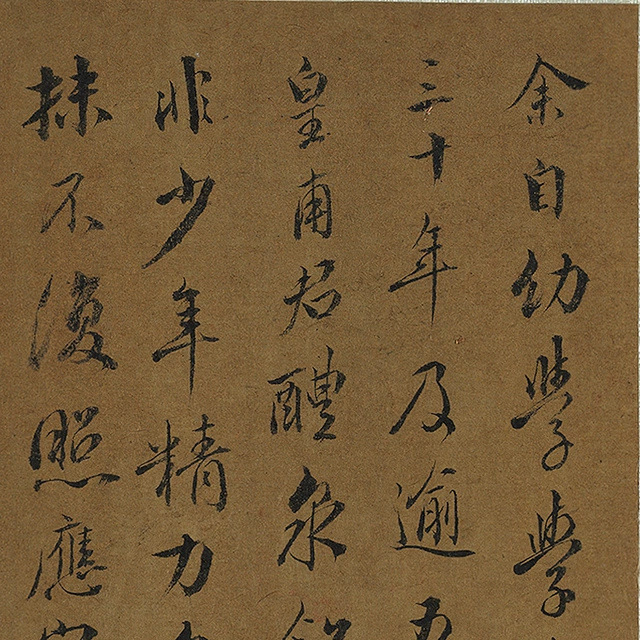 余自幼學學
三十年及逾五
皇甫君醴泉銘
非少年精力
抹不復照應